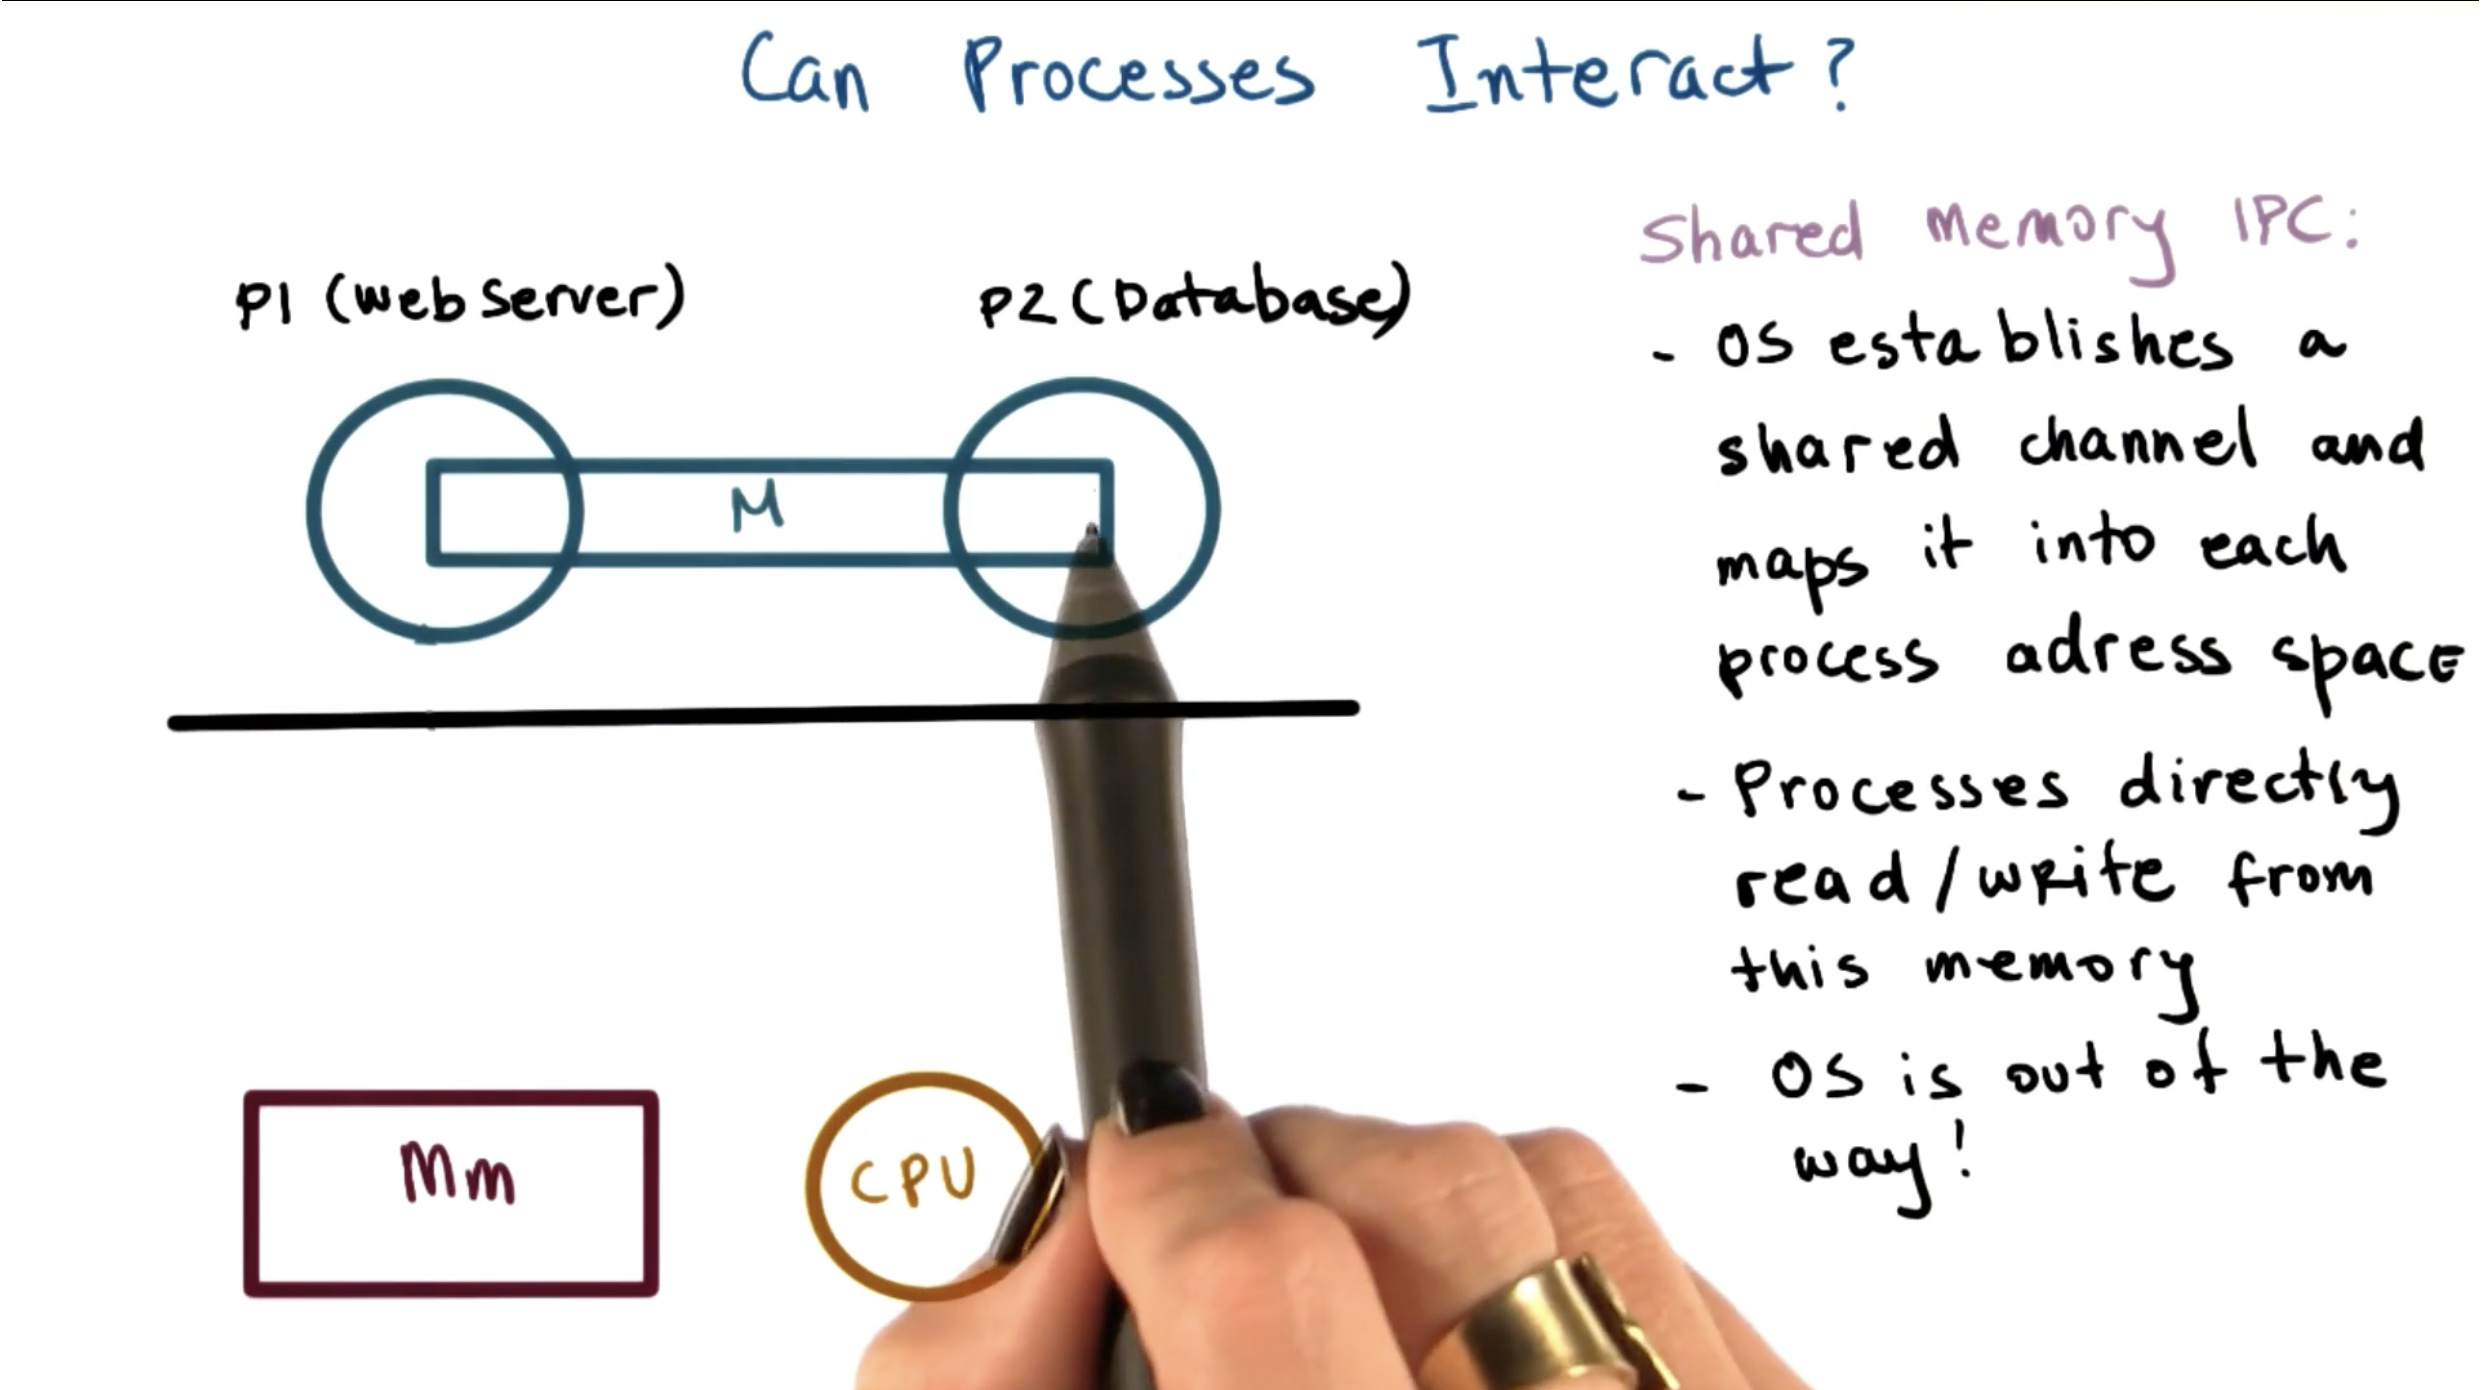 Can Processes Interact?
P1 (Web Server)
P2 (Database)
M
Mm
CPU
Shared Memory IPC:
- OS establishes a
shared channel and
maps it into each
process adress space
- Processes directly
read/write from
this memory
- OS is out of the
way!